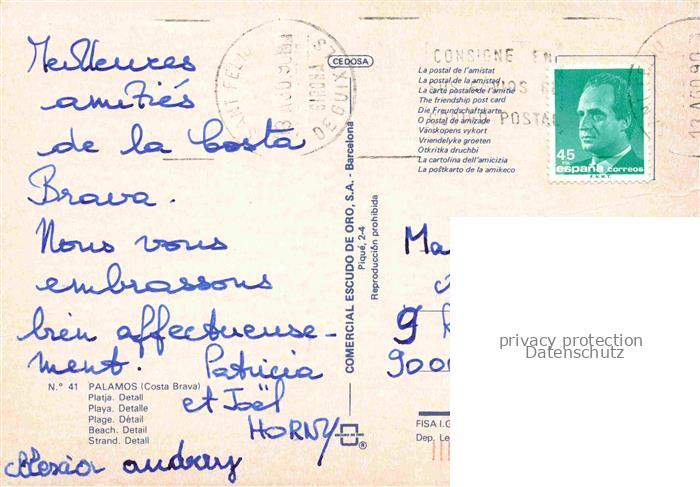 Meilleures
amitiés
de la Costa
Brava.
Nous vous
embrassons
bien affectueuse-
ment. Patricia
et Joël
HORNY
audrey
N.° 41 PALAMOS (Costa Brava)
Platja. Detall
Playa. Detalle
Plage. Détail
Beach. Detail
Strand. Detall
CEDOSA
COMERCIAL ESCUDO DE ORO, S.A. - Barcelona
Piqué, 2-4
Reproducción prohibida
SANT FELIU
DE GUIXOLS
GIRONA
CONSIGNE EN
POSTAL
La postal de l'amistat
La postal de la amistad
La carte postale de l'amitié
The friendship post card
Die Freundschaftskarte
O postal de amizade
Vänskopens vykort
Vriendelyke groeten
Otkritka druchbi
La cartolina dell'amicizia
La poŝtkarto de la amikeco
45
PTA
españa correos
F.N.M.T.
13 AGO 90
Ma
9
9000
privacy protection
Datenschutz
FISA I.G
Dep. Le
®